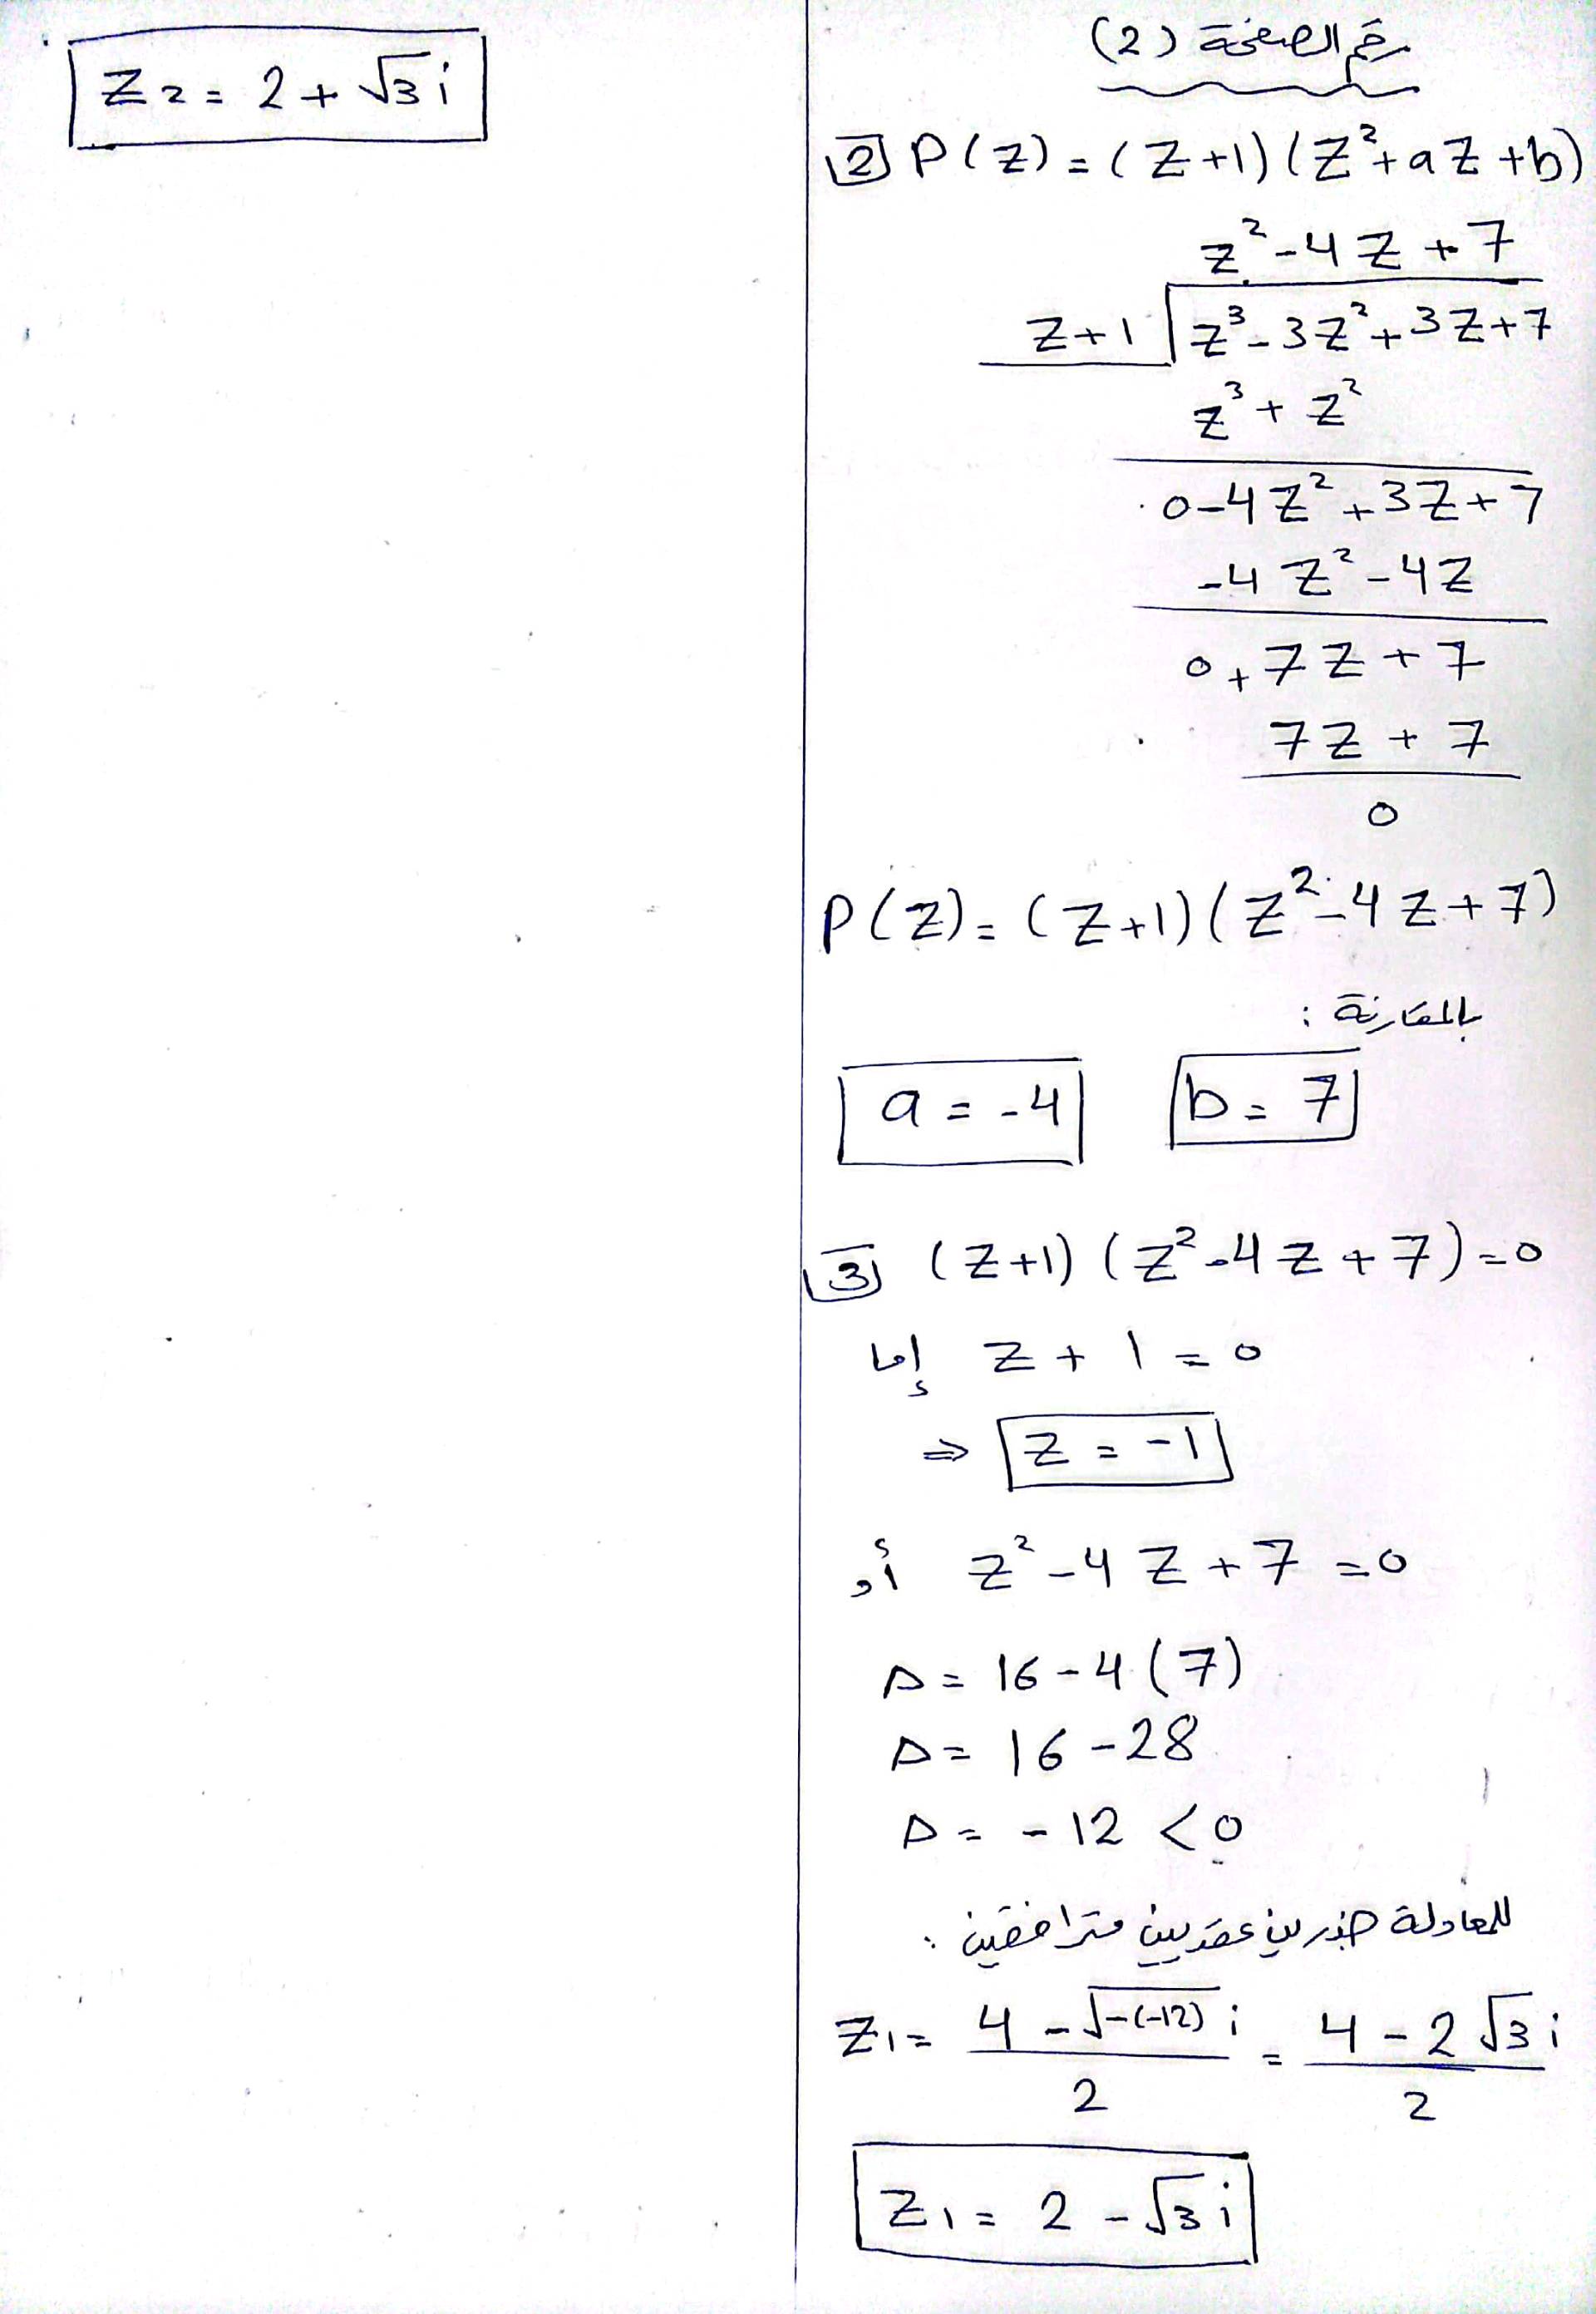 رقم الصفحة (2)
[2] P(Z) = (Z+1)(Z²+aZ+b)
Z²-4Z+7
Z+1 | Z³-3Z²+3Z+7
Z³+Z²
0-4Z²+3Z+7
-4Z²-4Z
0+7Z+7
7Z+7
0
P(Z) = (Z+1)(Z²-4Z+7)
بالمقارنة :
a = -4    b = 7
[3] (Z+1)(Z²-4Z+7)=0
إما Z+1=0
⇒ Z = -1
أو Z²-4Z+7=0
Δ = 16-4(7)
Δ = 16-28
Δ = -12 < 0
للمعادلة جذرين عقديين مترافقين :
Z₁ = (4-√(-(-12)) i)/2 = (4-2√3 i)/2
Z₁ = 2-√3 i
Z₂ = 2+√3 i